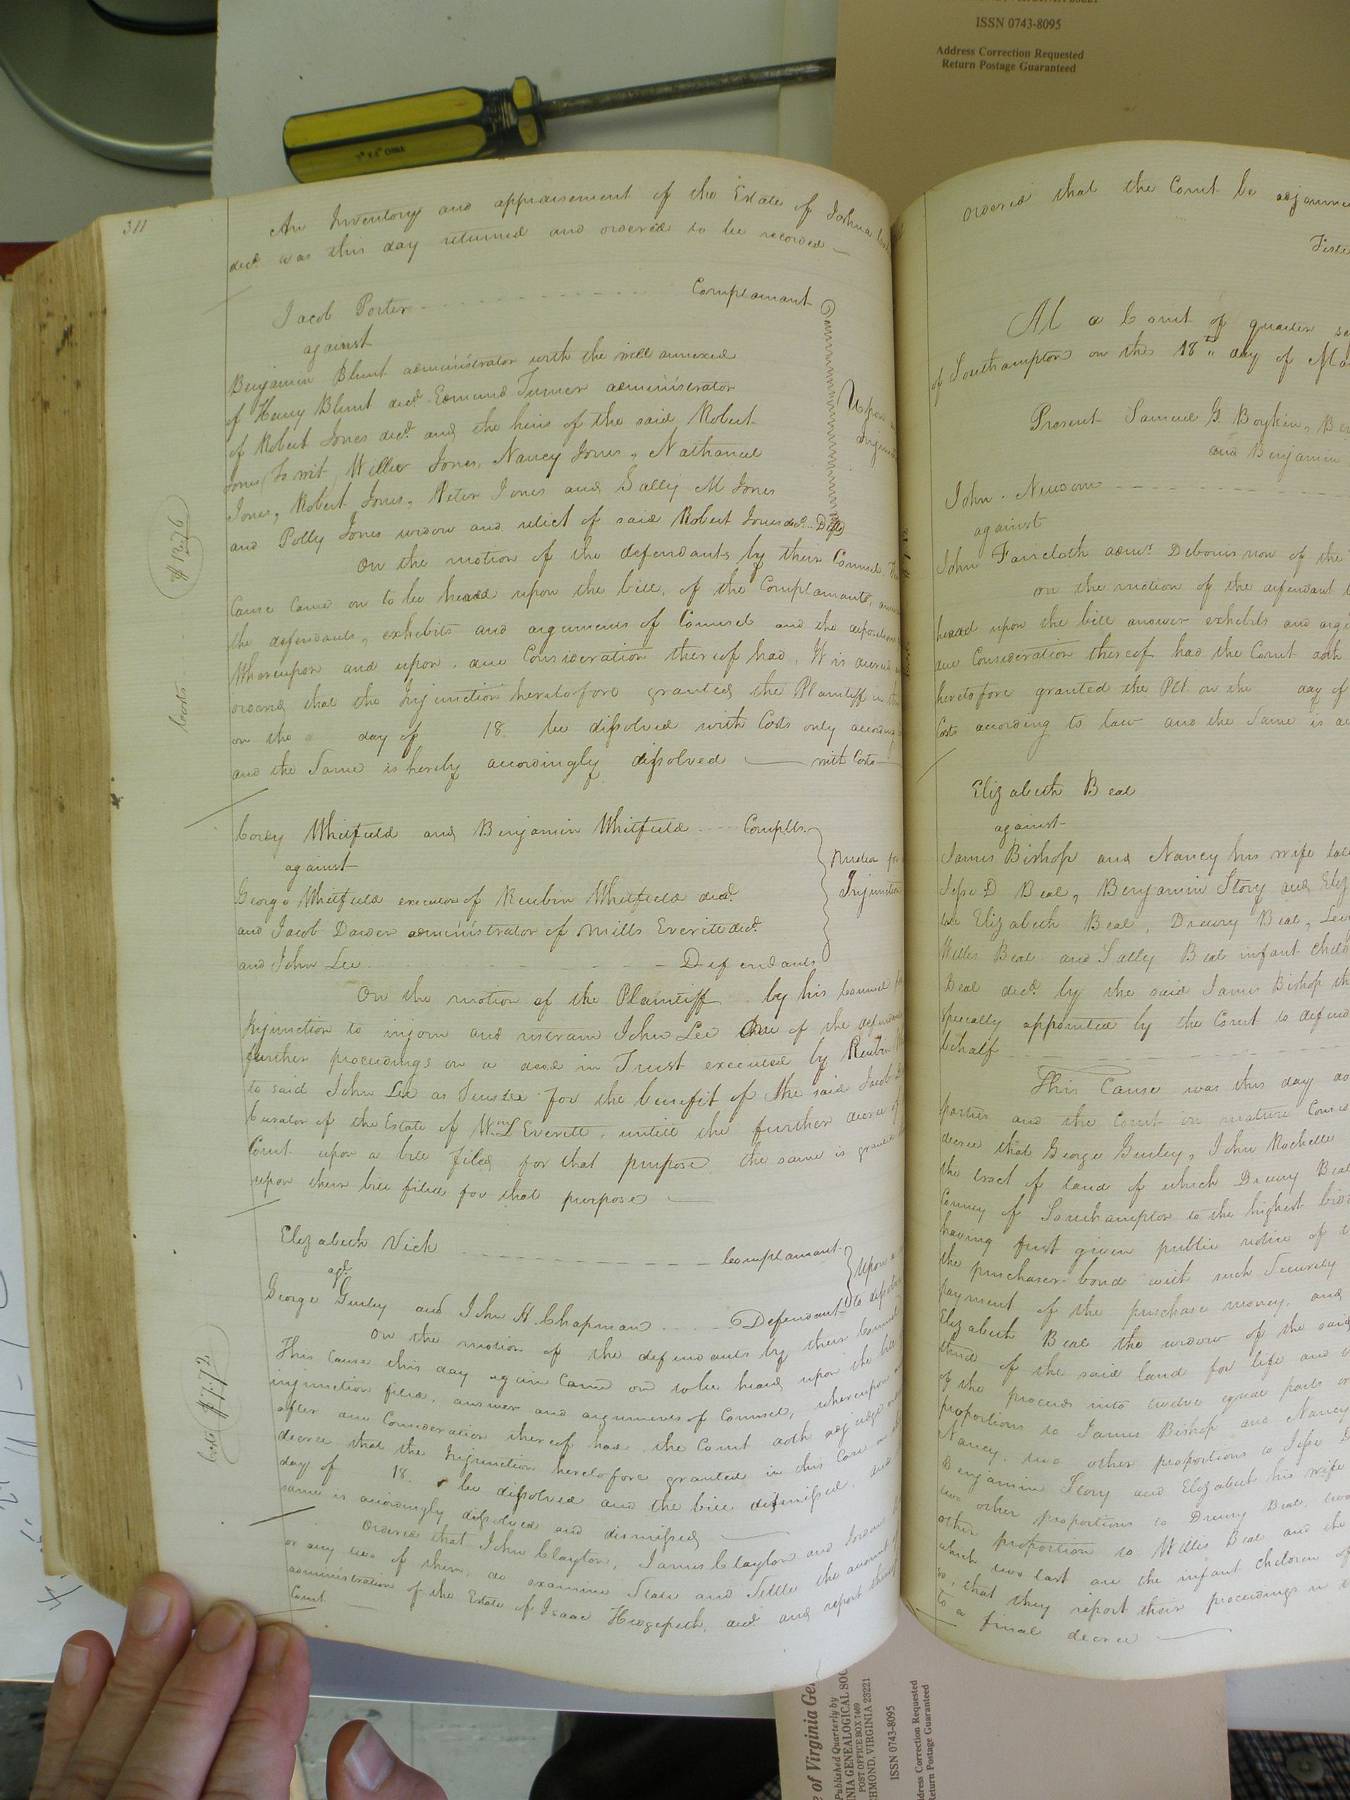 ISSN 0743-8095
Address Correction Requested
Return Postage Guaranteed
311
An Inventory and appraisement of the Estate of Joshua
decd. was this day returned and ordered to be recorded
Jacob Porter Complainant
against
Benjamin Blunt administrator with the will annexed
of Henry Blunt decd. Edmund Turner administrator
of Robert Jones decd. and the heirs of the said Robert
Jones, To wit, Willie Jones, Nancy Jones, Nathaniel
Jones, Robert Jones, Peter Jones and Sally M Jones
and Polly Jones widow and relict of said Robert Jones decd. Defts
Upon
On the motion of the defendants by their Counsel
Cause Came on to be heard upon the bill, of the Complainants,
the defendants, exhibits and arguments of Counsel and the
Whereupon and upon due Consideration thereof had, It is
ordered that the Injunction heretofore granted the Plaintiff in
on the day of 18 be dissolved with Costs only
and the Same is hereby accordingly dissolved with Costs
Costs
Whitfield and Benjamin Whitfield Complts.
against
George Whitfield executor of Reubin Whitfield decd.
and Jacob Darden administrator of Mills Everitt decd.
and John Lee Defendants
Motion for
Injunction
On the motion of the Plaintiff by his Counsel
Injunction to injoin and restrain John Lee One of the
further proceedings on a deed in Trust executed by Reubin
to said John Lee as Trustee for the benefit of the said Jacob
Curator of the Estate of Wm. Everitt, untill the further decree of
Court upon a bill filed for that purpose the same is granted
upon their bill filed for that purpose
Elizabeth Vick Complainant
agt.
George Gurley and John H. Chapman Defendants
Upon
to dissolve
On the motion of the defendants by their Counsel
This Cause this day again Came on to be heard upon the bill
injunction filed, answer and arguments of Counsel, whereupon
after due Consideration thereof had the Court doth adjudge
decree that the Injunction heretofore granted in this Case
day of 18 be dissolved and the bill dismissed, and
same is accordingly dissolved and dismissed
Costs $7.72
Ordered that John Clayton, James Clayton and Jordan
or any two of them, do examine State and Settle the account
administration of the Estate of Isaac Hedgepeth, decd. and report
Court
ordered that the Court be adjourned
At a Court of quarter
of Southampton on the 18th day of
Present Samuel G. Boykin,
and Benjamin
John Newsom
against
John Faircloth admr. Debonis non of the
on the motion of the defendant
heard upon the bill answer exhibits and
due Consideration thereof had the Court doth
heretofore granted the Plt. on the day of
Costs according to law and the Same is
Elizabeth Beal
against
James Bishop and Nancy his wife late
Jesse D Beal, Benjamin Story and
late Elizabeth Beal, Drewry Beal,
Willis Beal and Sally Beal infant
Beal decd. by the said James Bishop
specially appointed by the Court to defend
behalf
This Cause was this day
parties and the Court on mature
decree that George Gurley, John Rochelle
the tract of land of which Drewry Beal
County of Southampton to the highest
having first given public notice of
the purchaser bond with such Security
payment of the purchase money, and
Elizabeth Beal the widow of the said
third of the said land for life and
of the proceeds into twelve equal parts
proportions to James Bishop and Nancy
Nancy, two other proportions to Jesse D
Benjamin Story and Elizabeth his wife
two other proportions to Drewry Beal, two
other proportion to Willis Beal and the
which two last are the infant children of
that they report their proceedings in
to a final decree
of Virginia
Published Quarterly by
GENEALOGICAL
POST OFFICE BOX 7469
RICHMOND, VIRGINIA 23221
ISSN 0743-8095
Address Correction Requested
Return Postage Guaranteed